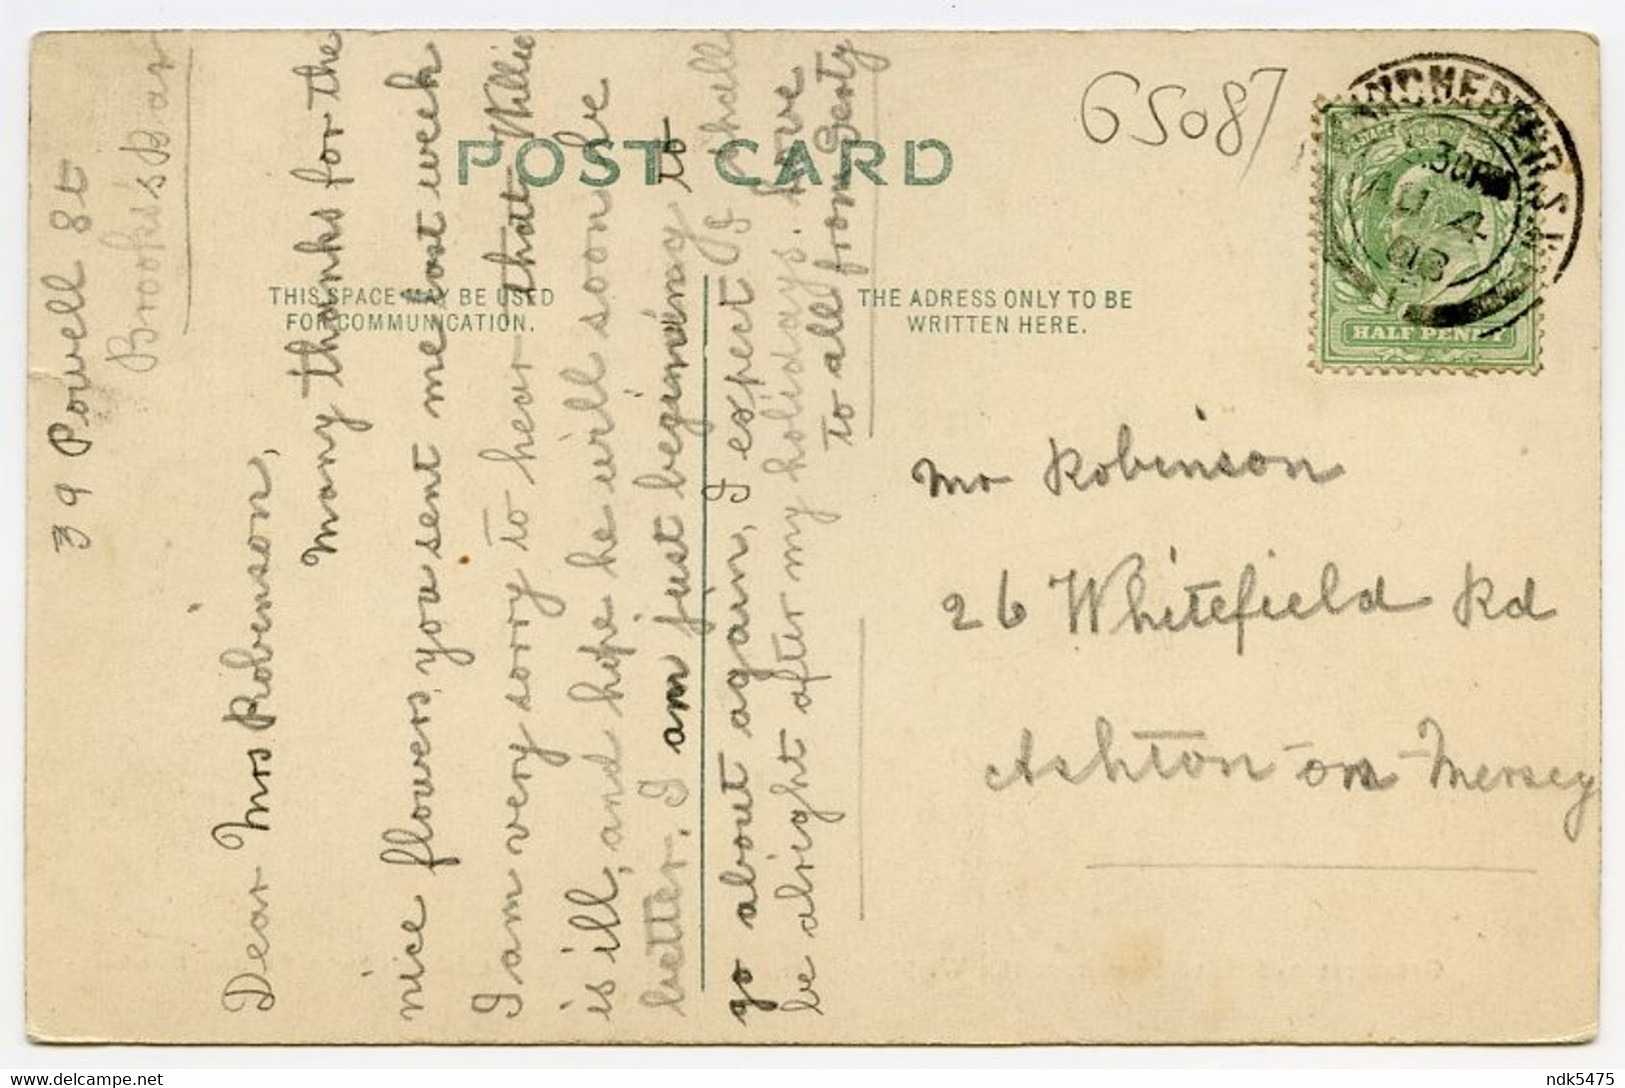 39 Powell St
Brooks's Bar
Dear Mrs Robinson,
Many thanks for the
nice flowers, you sent me last week
I am very sorry to hear that Willie
is ill, and hope he will soon be
better. I am just beginning to
go about again, I expect I shall
be alright after my holidays. Love
to all from Gerty
POST CARD
THIS SPACE MAY BE USED
FOR COMMUNICATION.
THE ADRESS ONLY TO BE
WRITTEN HERE.
GS087
.30P
AU 4
08
HALF PENNY
Mr Robinson
26 Whitefield Rd
Ashton-on-Mersey
ndk5475